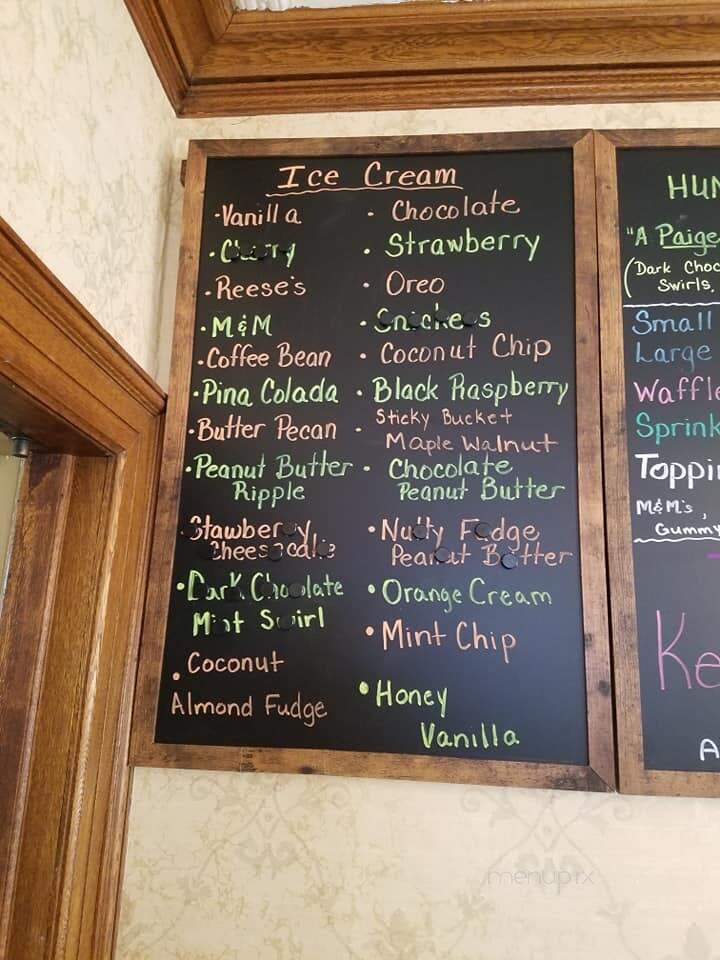 Ice Cream
· Vanilla
· Cherry
· Reese's
· M&M
· Coffee Bean
· Pina Colada
· Butter Pecan
· Peanut Butter
Ripple
Stawberry
Cheesecake
· Dark Chocolate
Mint Swirl
· Coconut
Almond Fudge
· Chocolate
· Strawberry
· Oreo
· Snickers
· Coconut Chip
· Black Raspberry
· Sticky Bucket
Maple Walnut
· Chocolate
Peanut Butter
· Nutty Fudge
Peanut Butter
· Orange Cream
· Mint Chip
· Honey
Vanilla
HUN
"A Paige
(Dark Choc
Swirls,
Small
Large
Waffle
Sprink
Toppi
M&M's,
Gummy
Ke
A
menupix